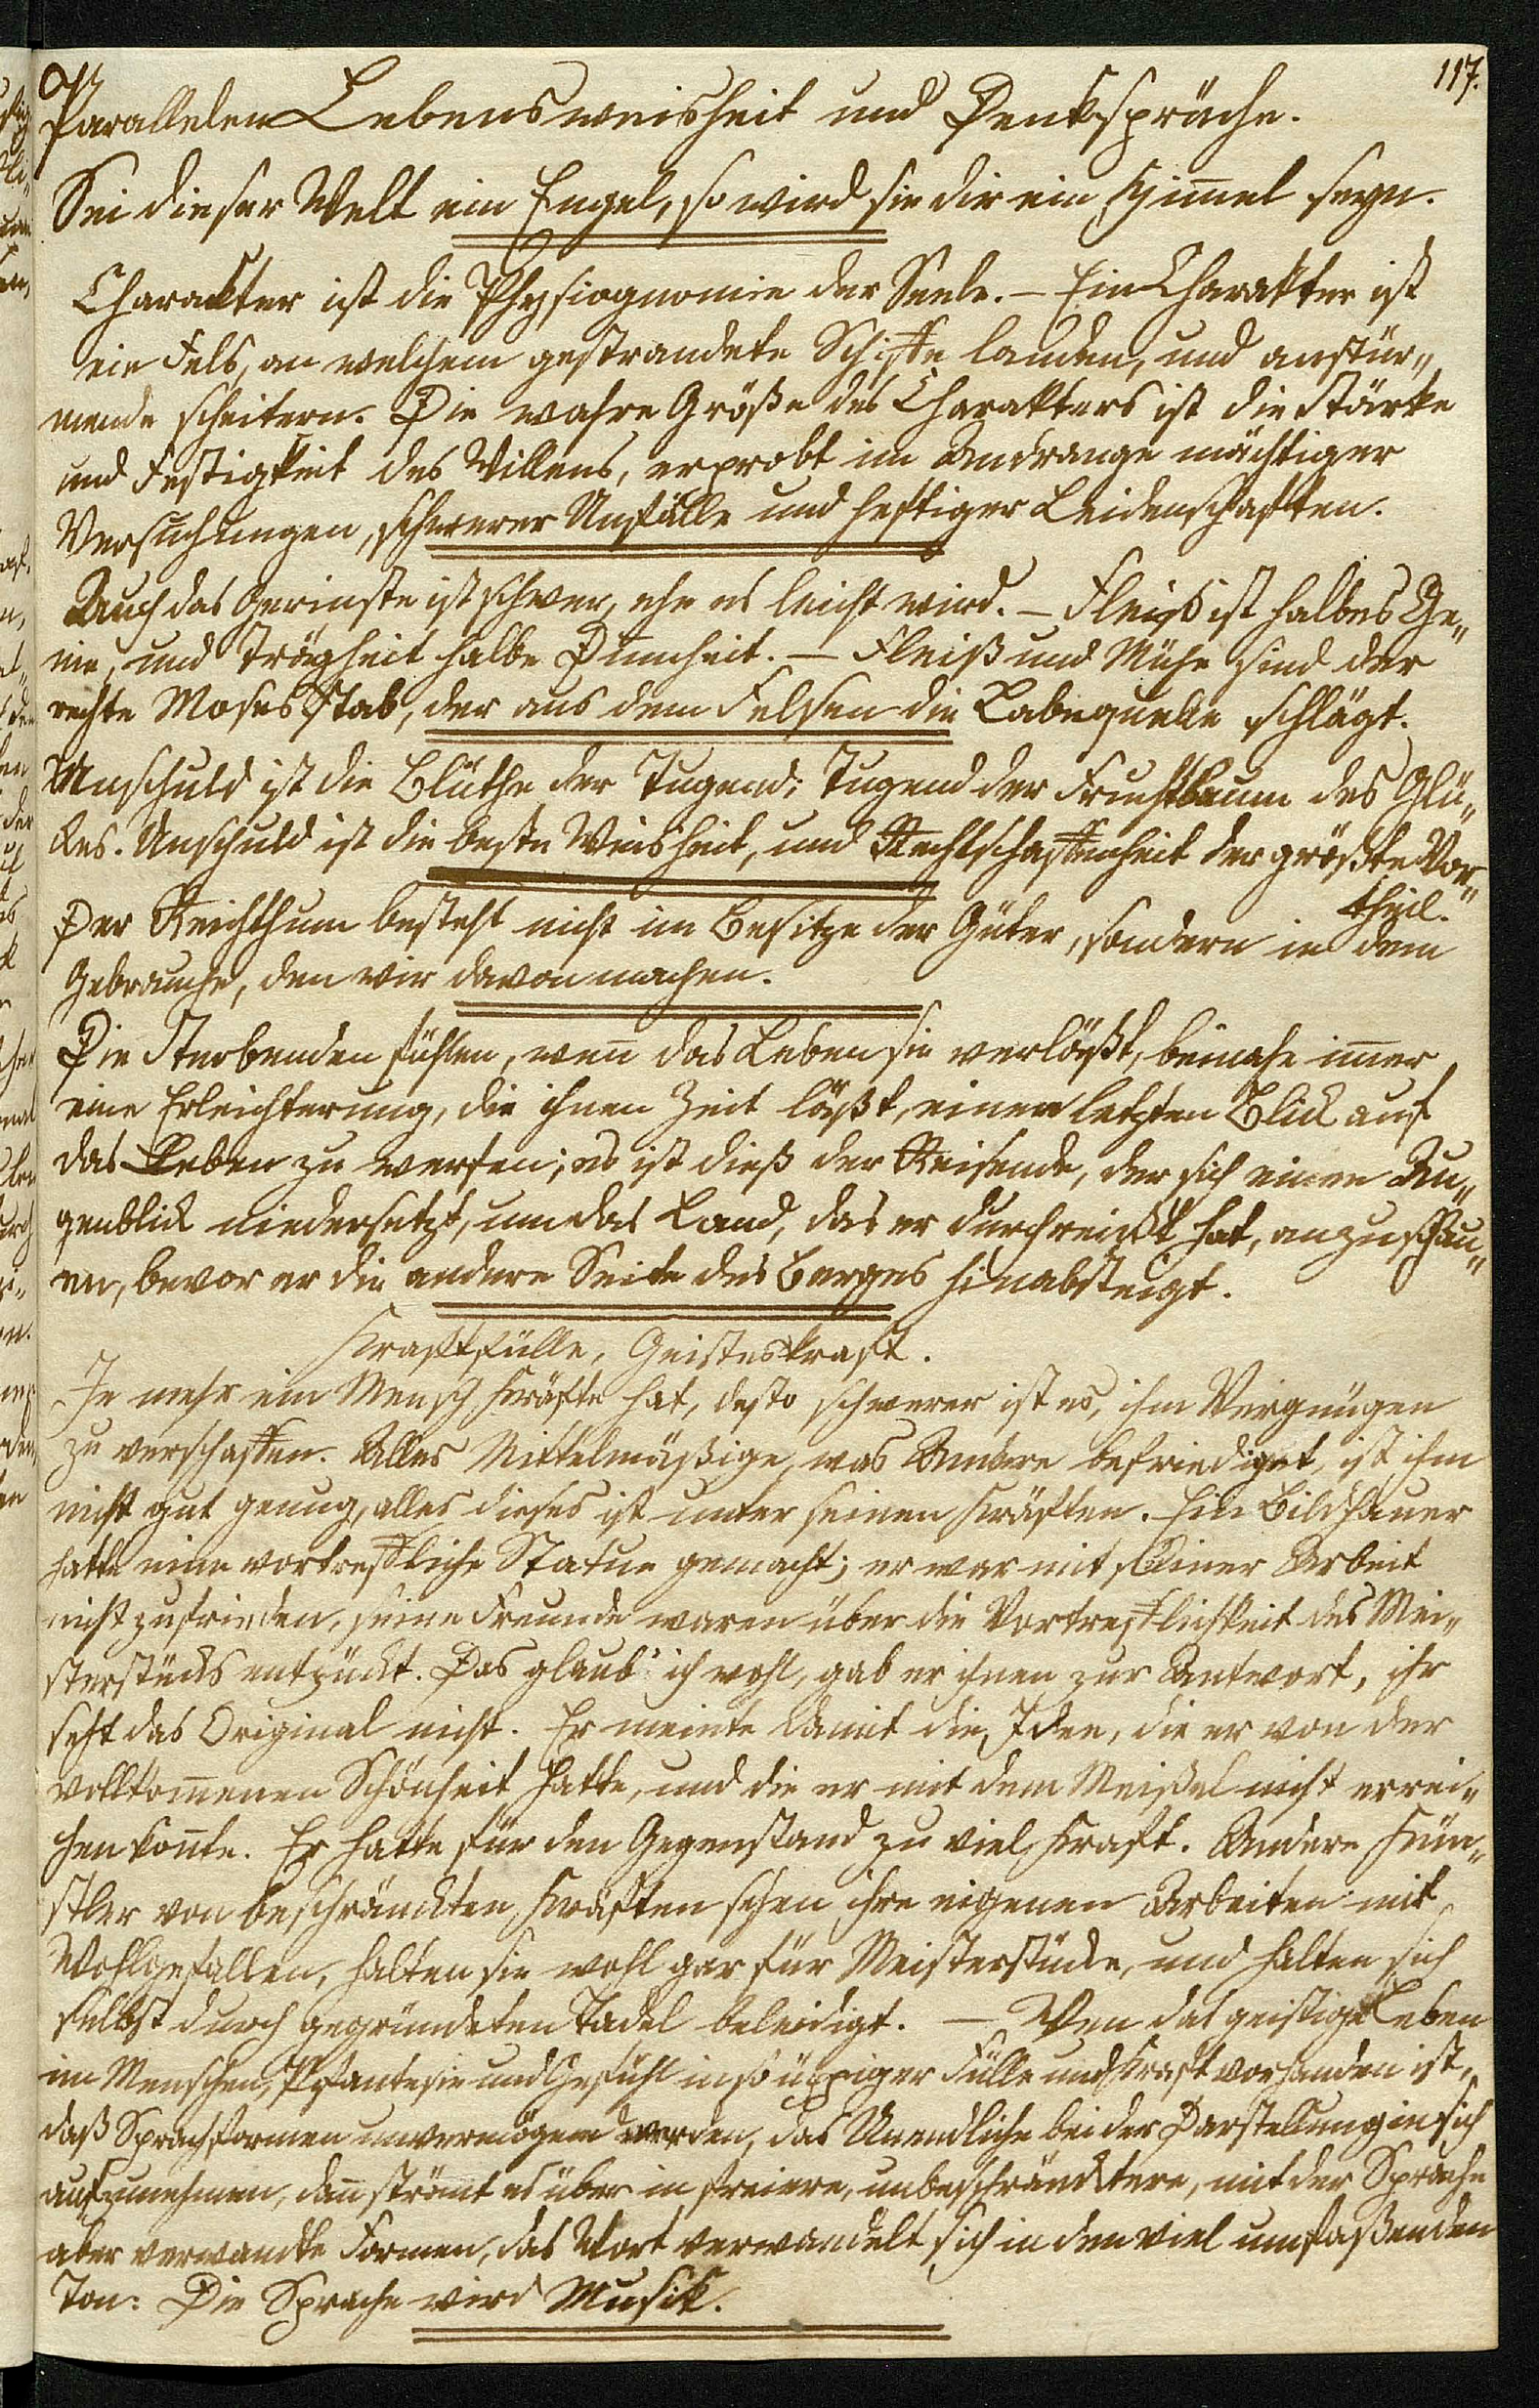 117.
Parallelen Lebensweisheit und Denksprüche.
Sei dieser Welt ein Engel, so wird sie dir ein Himmel seyn.
Charackter ist die Physiognomie der Seele. – Ein Charakter ist
ein Fels, an welchem gestrandete Schiffe landen, und anstür„
mende scheitern. Die wahre Größe des Charakters ist die Stärke
und Festigkeit des Willens, erprobt im Andrange mächtiger
Versuchungen, schwerer Unfälle und heftiger Leidenschaften.
Auch das Gerinste ist schwer, ehe es leicht wird. – Fleiß ist halbes Ge„
nie, und Trägheit halbe Dumheit. – Fleiß und Mühe sind der
rechte Moses Stab, der aus dem Felsen die Labequelle schlägt.
Unschuld ist die Blüthe der Tugend; Tugend der Fruchtbaum des Glü„
ckes. Unschuld ist die beste Weisheit, und Rechtschaffenheit der größte Vor„
theil.
Der Reichthum besteht nicht im Besitze der Güter, sondern in dem
Gebrauche, den wir davon machen.
Die Sterbenden fühlen, wen̄ das Leben sie verläßt, beinahe im̄er
eine Erleichterung, die ihnen Zeit läßt, einen letzten Blick auf
das Leben zu werfen; es ist dieß der Reisende, der sich einen Au„
genblick niedersetzt, um das Land, das er durchreißt hat, anzuschau„
en, bevor er die andere Seite des Berges hinabsteigt.
Kraftfülle, Geisteskraft.
Je mehr ein Mensch Kräfte hat, desto schwerer ist es, ihm Vergnügen
zu verschaffen. Alles Mittelmäßige, was Andere befriediget, ist ihm
nicht gut genug, alles dieses ist unter seinen Kräften. Ein Bildhauer
hatte eine vortreffliche Statue gemacht; er war mit seiner Arbeit
nicht zufrieden, seine Freunde waren über die Vortrefflichkeit des Mei„
sterstücks entzückt. Das glaub' ich wohl, gab er ihnen zur Antwort, ihr
seht das Original nicht. Er meinte damit die Idee, die er von der
vollkom̄enen Schönheit hatte, und die er mit dem Meißel nicht errei„
chen kon̄te. Er hatte für den Gegenstand zu viel Kraft. Andere Kün„
stler von beschränckten Kräften sehen ihre eigenen Arbeiten mit
Wohlgefallen, halten sie wohl gar für Meisterstücke, und halten sich
selbst durch gegründeten Tadel beleidigt. – Wen̄ das geistige Leben
im Menschen, Phantesie und Gefühl in so üppiger Fülle und Kraft vorhanden ist,
daß Sprachformen unvermögend werden, das Unendliche bei der Darstellung in sich
aufzunehmen, dan̄ strömt es über in freiere, unbeschräncktere, mit der Sprache
aber verwandte Formen, das Wort verwandelt sich in den viel umfaßenden
Ton: Die Sprache wird Musik.